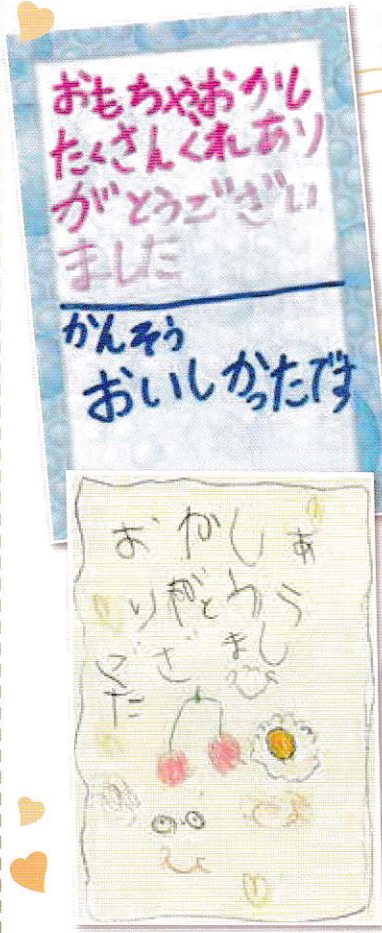 おもちゃやおかし
たくさんくれあり
がとうございい
ました
かんそう
おいしかったです
おかしあ
りがとうう
ござまし
た